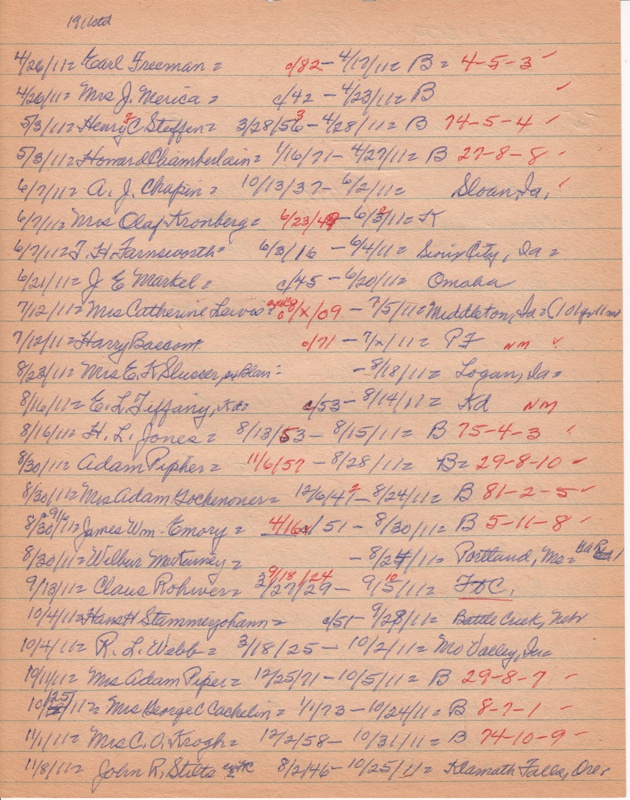 1911
4/26/11= Earl Freeman = c/82 - 4/17/11= B = 4-5-3 ✓
4/26/11= Mrs J. Merica = c/42 - 4/23/11= B ✓
5/3/11= Henry C Steffen = 3/28/56 3 - 4/28/11= B 74-5-4 ✓
5/3/11= Howard Chamberlain = 1/16/71 - 4/27/11= B 27-8-8 ✓
6/7/11= A. J. Chapin = 10/13/37 - 6/2/11= Sloan, Ia. ✓
6/7/11= Mrs Olaf Kronberg = 6/23/49 - 6/3/11= K
6/7/11= F. H. Farnsworth = 6/3/16 - 6/4/11= Sioux City, Ia =
6/21/11= J E Markel = c/45 - 6/20/11= Omaha
7/12/11= Mrs Catherine Lewis = /x/09 - 7/5/11= Middleton, Ia = (101
7/12/11= Harry Bassom c/71 - 7/x/11= PF NM ✓
8/23/11= Mrs E. K Slusser, = - 8/18/11= Logan, Ia =
8/16/11= E. L Tiffany, Kd = c/53 - 8/14/11= Kd NM
8/16/11= H. L. Jones = 8/13/53 - 8/15/11= B 75-4-3 ✓
8/30/11= Adam Pipher = 11/6/57 - 8/28/11= B = 29-8-10 ✓
8/30/11= Mrs Adam Gochenoner = 12/6/47 2 - 8/24/11= B 81-2-5 ✓
8/30 9/6/11= James Wm. Emory = 4/16/51 - 8/30/11= B 5-11-8 ✓
8/30/11= Wilbur McKenney = - 8/24/11= Portland, Me =
9/13/11= Claus Rohwer = 2/27/29 9/18/24 - 9/5/11= FDC,
10/4/11= Hans H Stammerjohann = c/51 - 9/28/11= Battle Creek, Nebr
10/4/11= R. L. Webb = 3/18/25 - 10/2/11= Mo Valley, Ia =
10/11/11= Mrs Adam Piper = 12/25/71 - 10/5/11= B 29-8-7 ✓
10/25/11= Mrs George C Cachelin = 1/1/73 - 10/24/11= B 8-7-1 ✓
11/1/11= Mrs C. A. Krogh = 12/2/58 - 10/31/11= B 74-10-9 ✓
11/8/11= John R. Stilts 8/2/46 - 10/25/11= Klamath Falls, Ore.